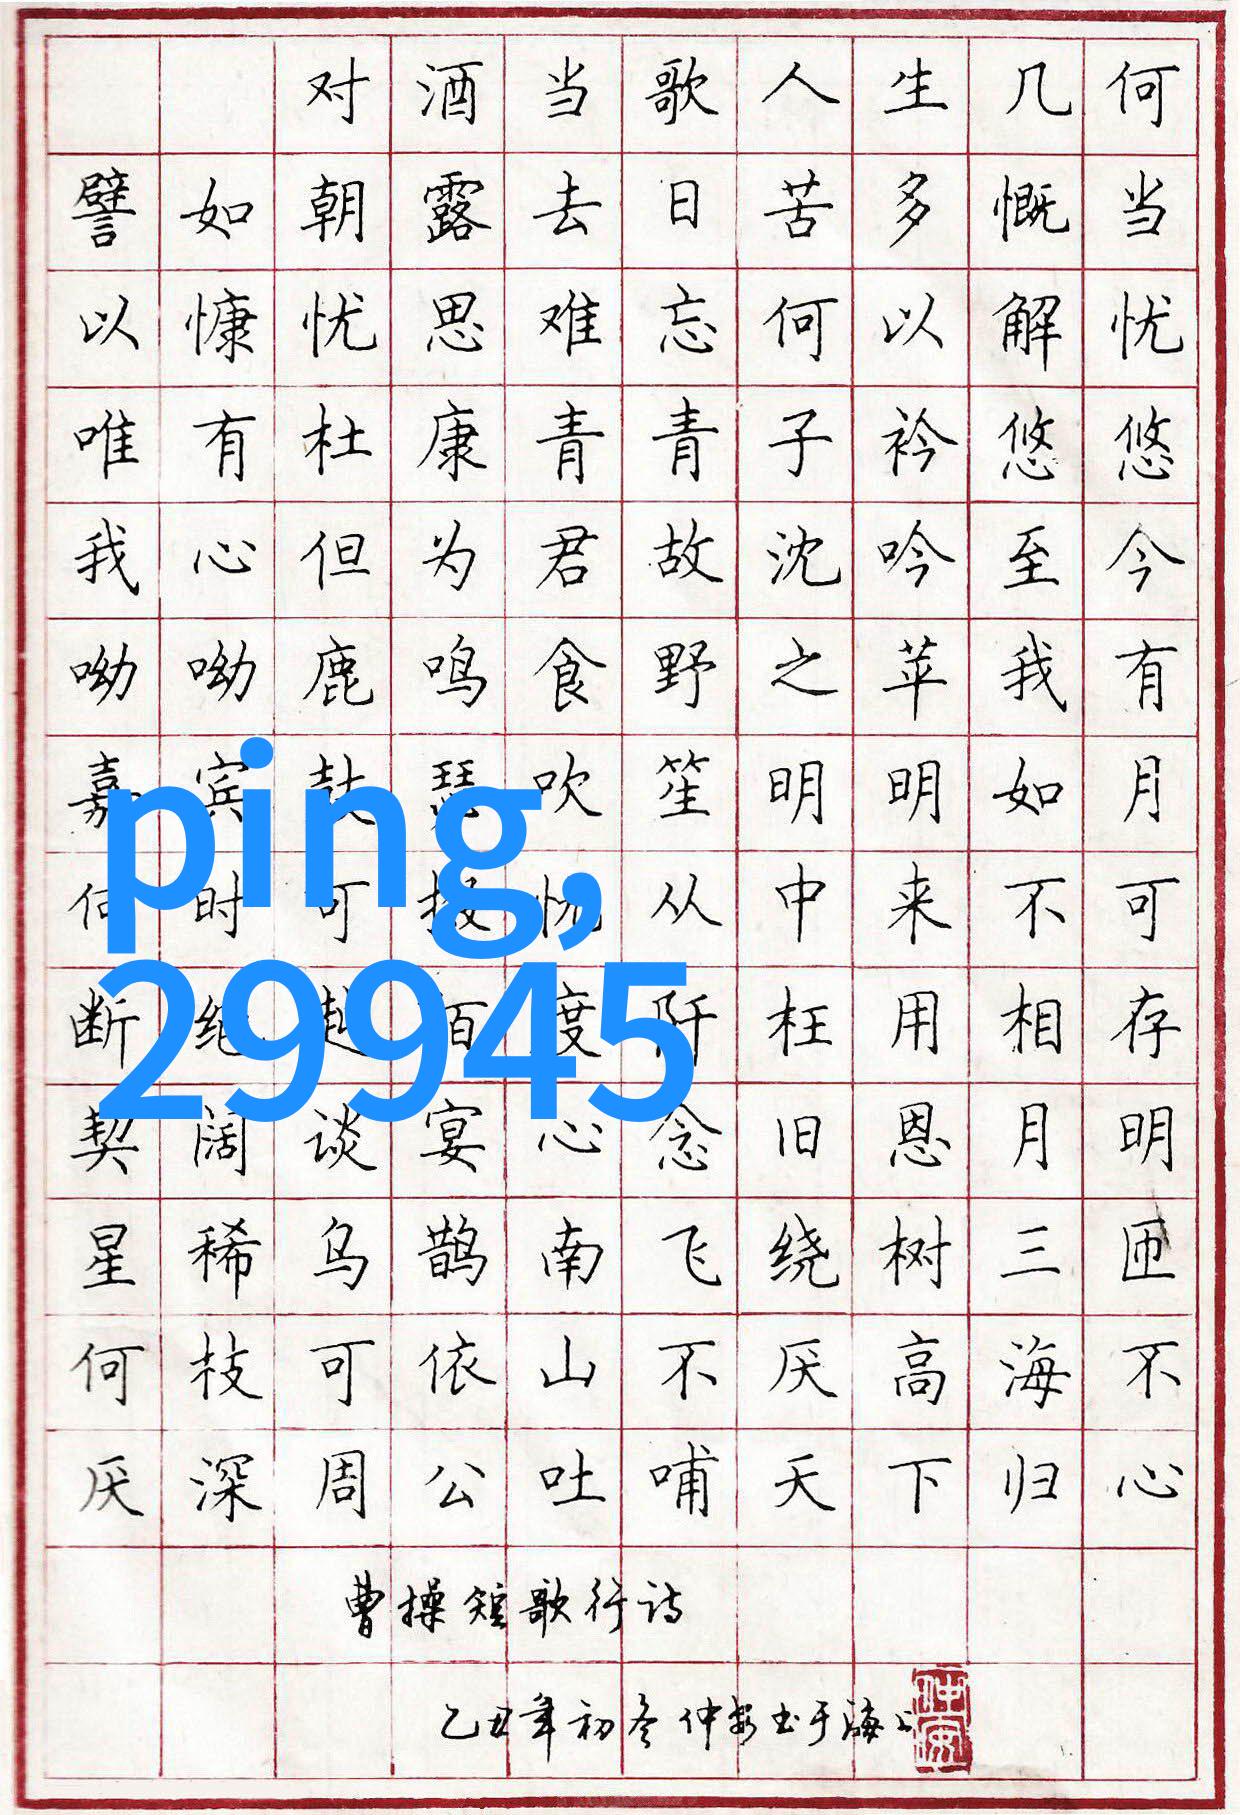 对酒当歌人生几何
譬如朝露去日苦多慨当
以慷忧思难忘何以解忧
唯有杜康青青子衿悠悠
我心但为君故沈吟至今
呦呦鹿鸣食野之苹我有
嘉宾鼓瑟吹笙明明如月
何时可掇忧从中来不可
断绝越陌度阡枉用相存
契阔谈宴心念旧恩月明
星稀乌鹊南飞绕树三匝
何枝可依山不厌高海不
厌深周公吐哺天下归心
ping,
29945
曹操短歌行诗
乙丑年初冬仲安书于海上
仲安